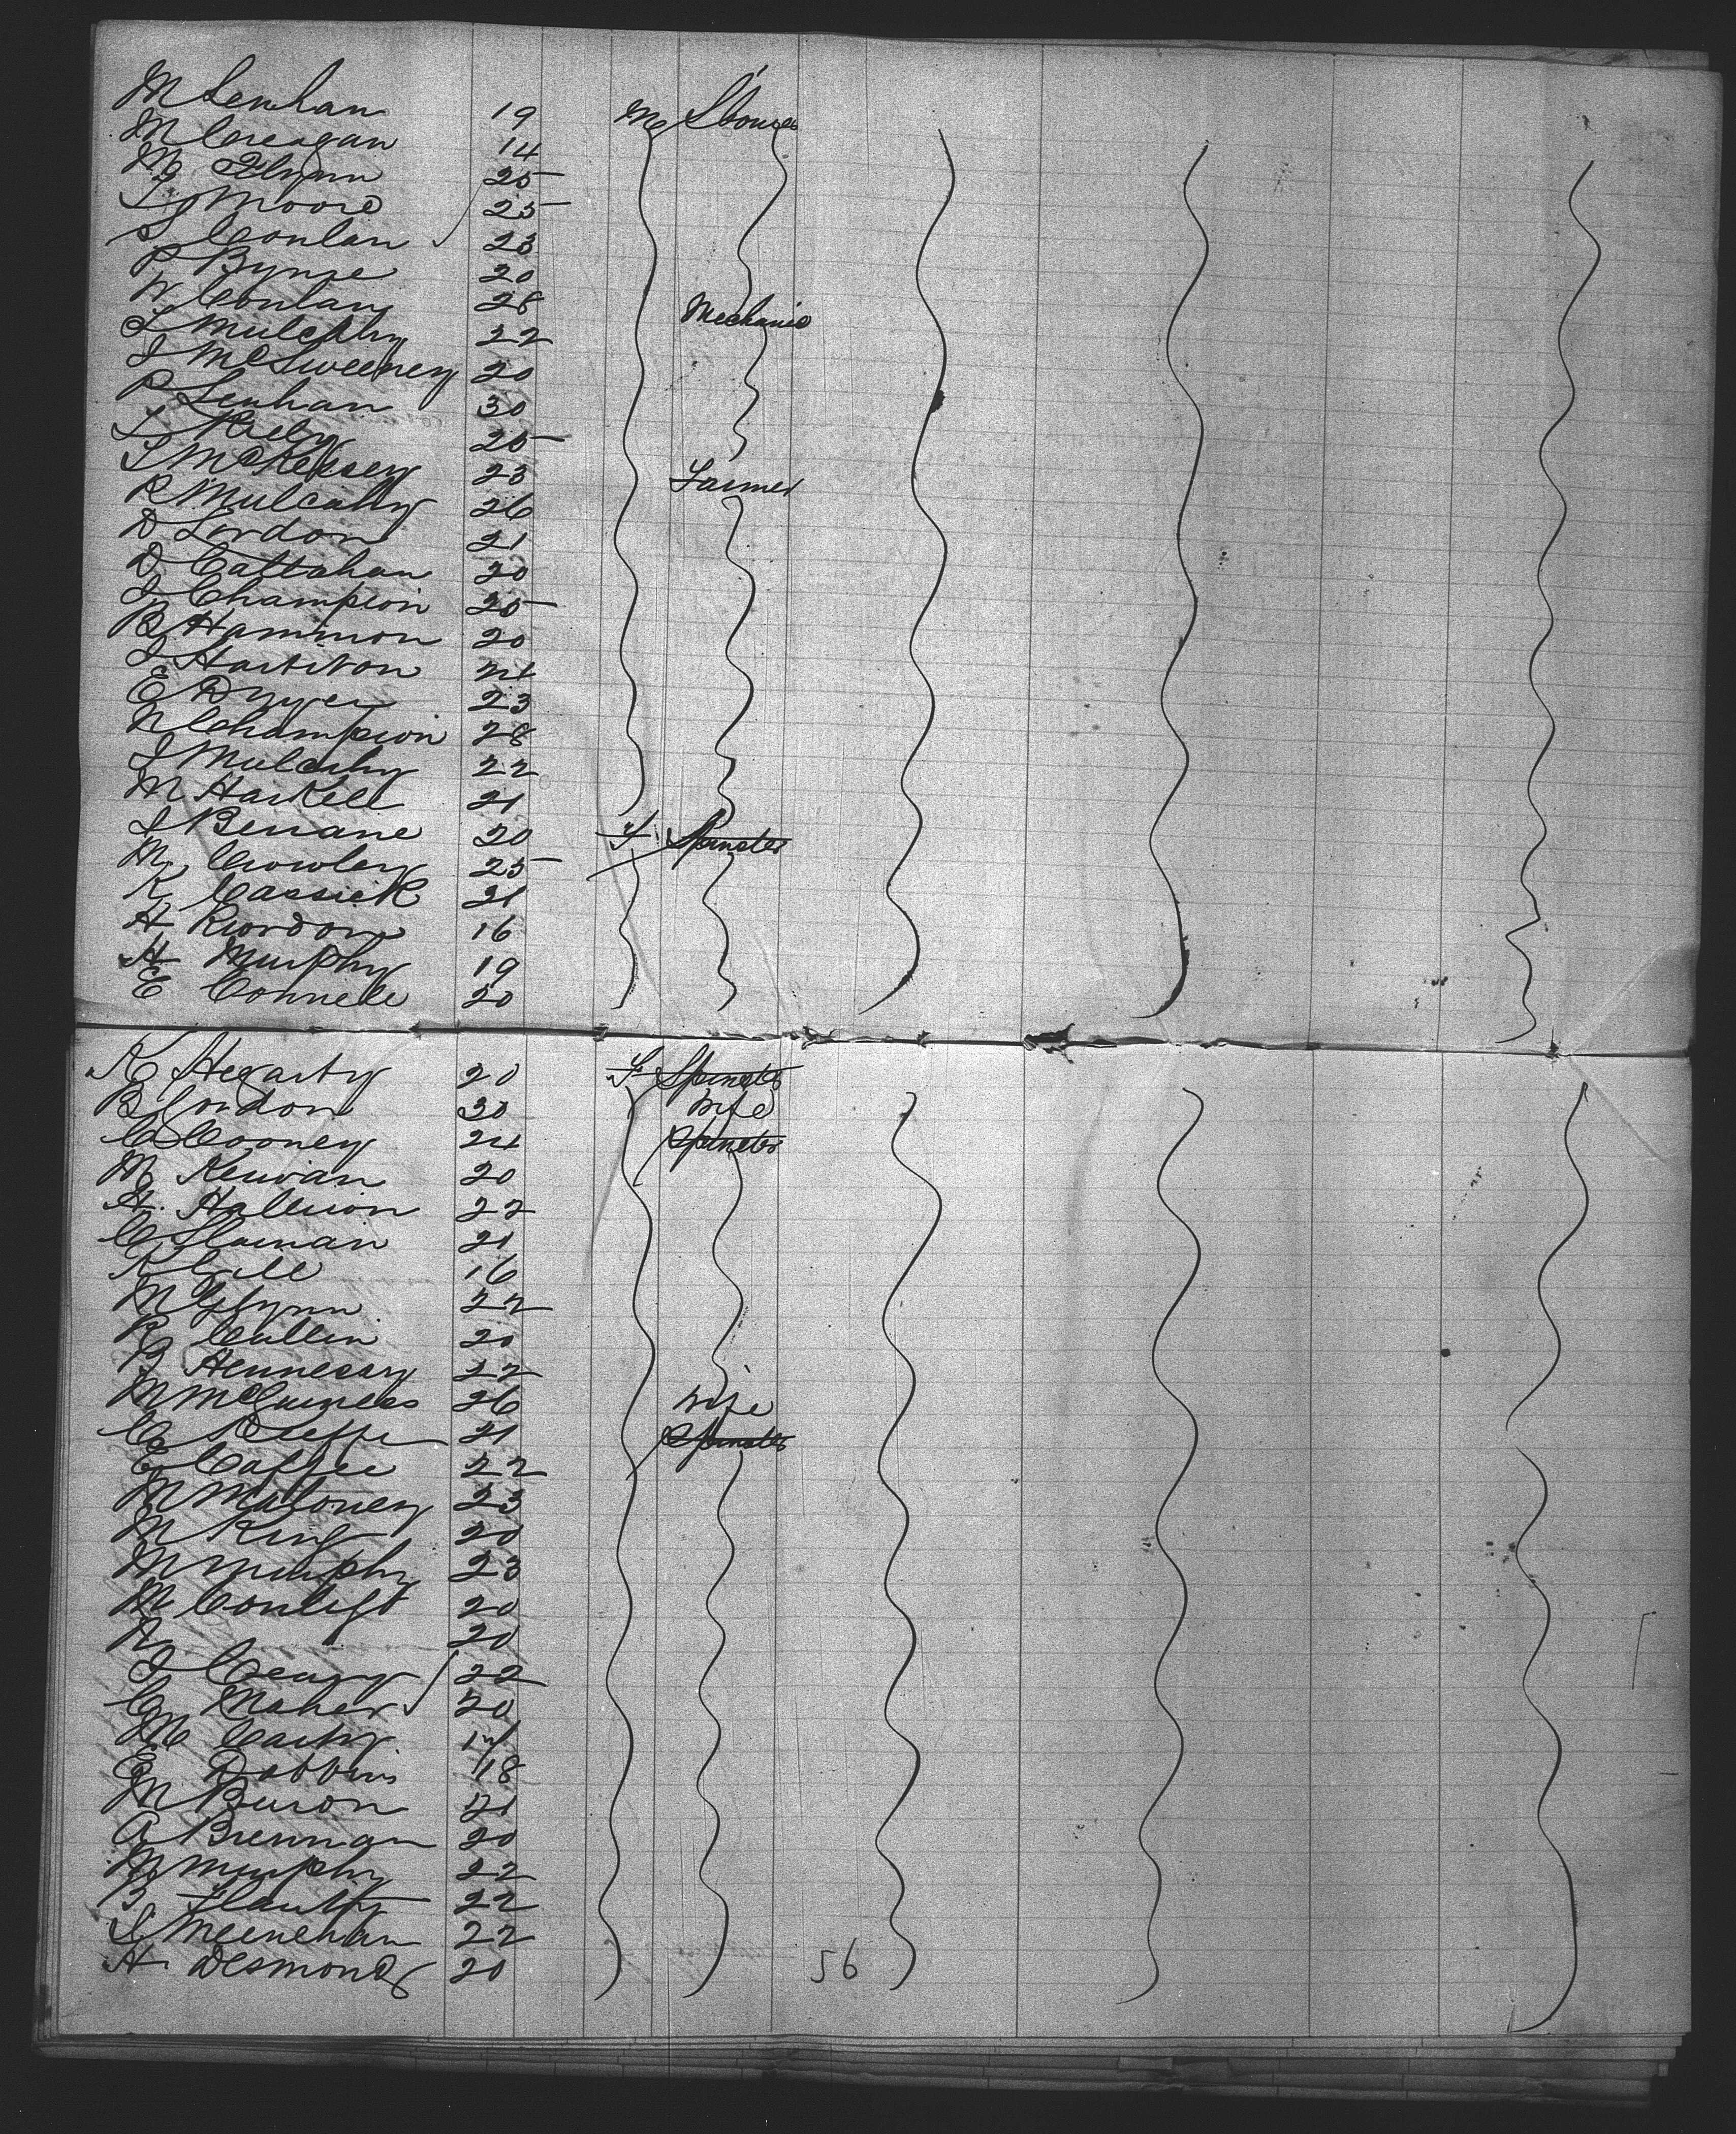 M Lenhan 19 M
M Creagan 14
M Flynn 25
T Moore 25
S Conlan 23
P Bynne 20
W Conlan 28 Mechanic
T Mulcahy 22
J McSweeney 20
P Lenhan 30
Kiely 25
23 Farmer
P Mulcahy 26
D 21
D Callahan 20
J Champion 25
B Hammon 20
J
E Dwyer 23
N Champion 28
J Mulcahy 22
M Haskell 21
J Berrane 20 F Spinster
M Crowley 25
K Cassick 21
A Riordon 16
A Murphy 19
E Connell 20
K Hegarty 20 F Spinster
B Gordon 30 Wife
C Cooney 24 Spinster
M Kerwan 20
22
C 21
K Gill 16
M Glynn 22
Cullin 20
Hennessy 22
M McGuiness 26 Wife
C Keeffe 21 Spinster
E Caffee 22
M Maloney 23
M King 20
M Murphy 23
M Conlift 20
20
J 22
C Maher 20
M Carty
E Dobbins 18
M Buron 21
A Brennan 20
M Murphy 22
B 22
S Meenehan 22
H Desmond 20 56